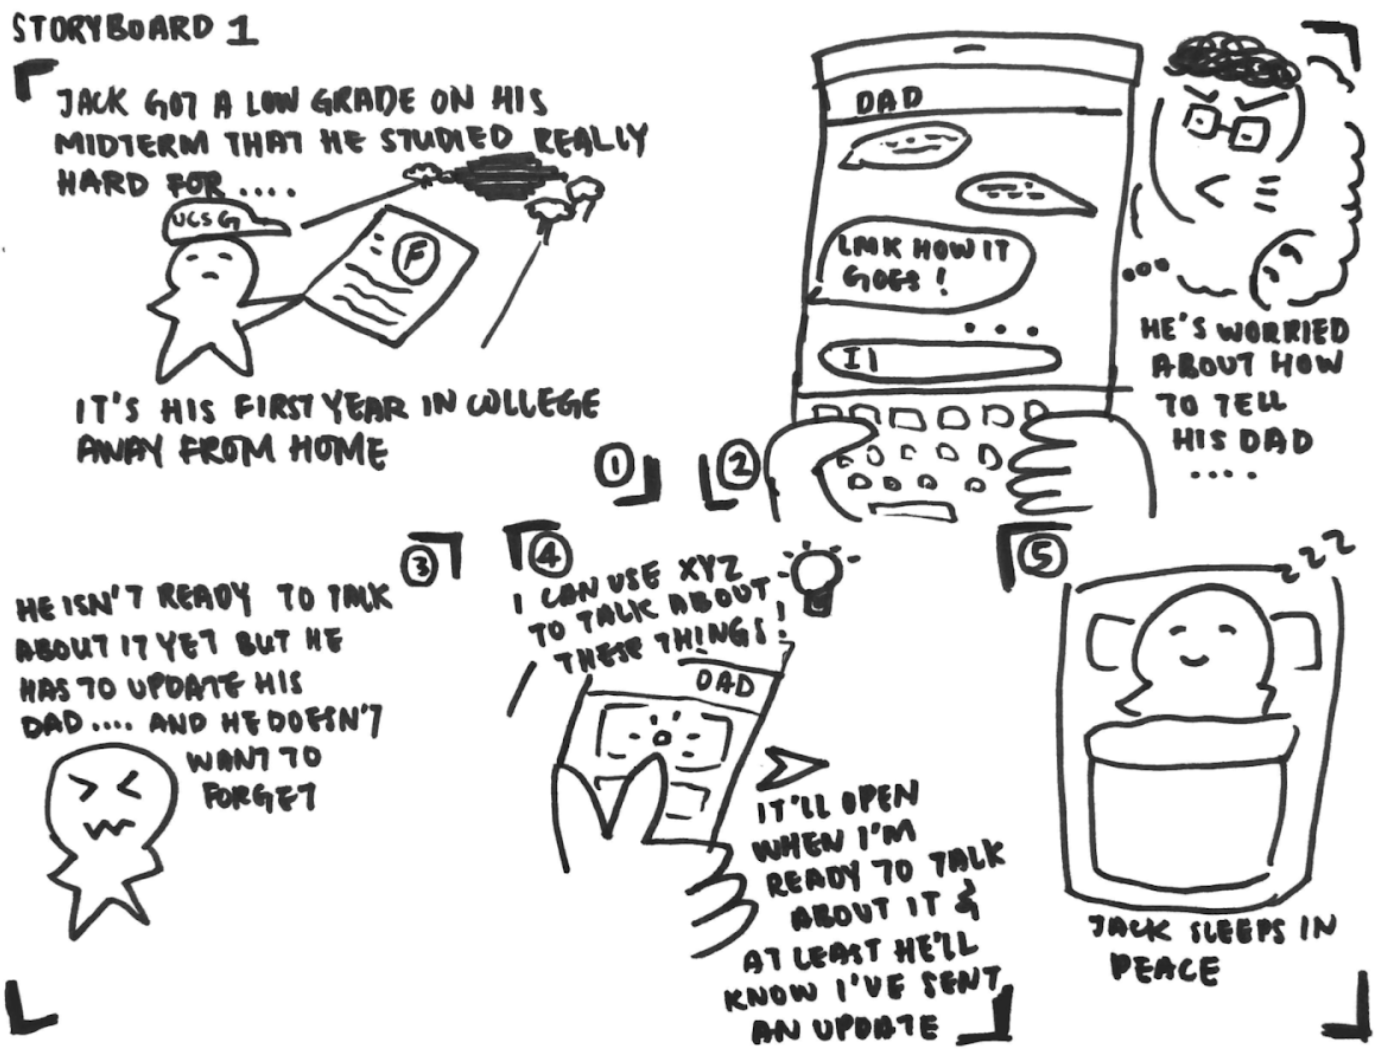 STORYBOARD 1
JACK GOT A LOW GRADE ON HIS
MIDTERM THAT HE STUDIED REALLY
HARD FOR ....
UCSG
F
IT'S HIS FIRST YEAR IN COLLEGE
AWAY FROM HOME
1
2
DAD
LMK HOW IT
GOES!
...
I|
HE'S WORRIED
ABOUT HOW
TO TELL
HIS DAD
....
3
HE ISN'T READY TO TALK
ABOUT IT YET BUT HE
HAS TO UPDATE HIS
DAD .... AND HE DOESN'T
WANT TO
FORGET
4
I CAN USE XYZ
TO TALK ABOUT
THESE THINGS!
DAD
IT'LL OPEN
WHEN I'M
READY TO TALK
ABOUT IT &
AT LEAST HE'LL
KNOW I'VE SENT
AN UPDATE
5
zzz
JACK SLEEPS IN
PEACE